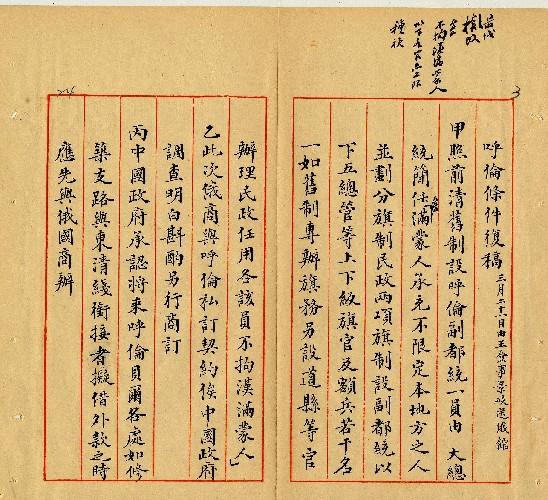 呼倫條件復稿
甲照前清舊制設呼倫副都統一員由大總
統簡任滿蒙人承充不限定本地方之人
並劃分旗制民政兩項旗制設副都統以
下五總管等上下級旗官及額兵若干名
一如舊制專辦旗務另設道縣等官
辦理民政任用各該員不拘漢滿蒙人」
乙此次俄商與呼倫私訂契約俟中國政府
調查明白斟酌另行商訂
丙中國政府承認將來呼倫貝爾各處如修
築支路與東清綫銜接者擬借外款之時
應先與俄國商辦